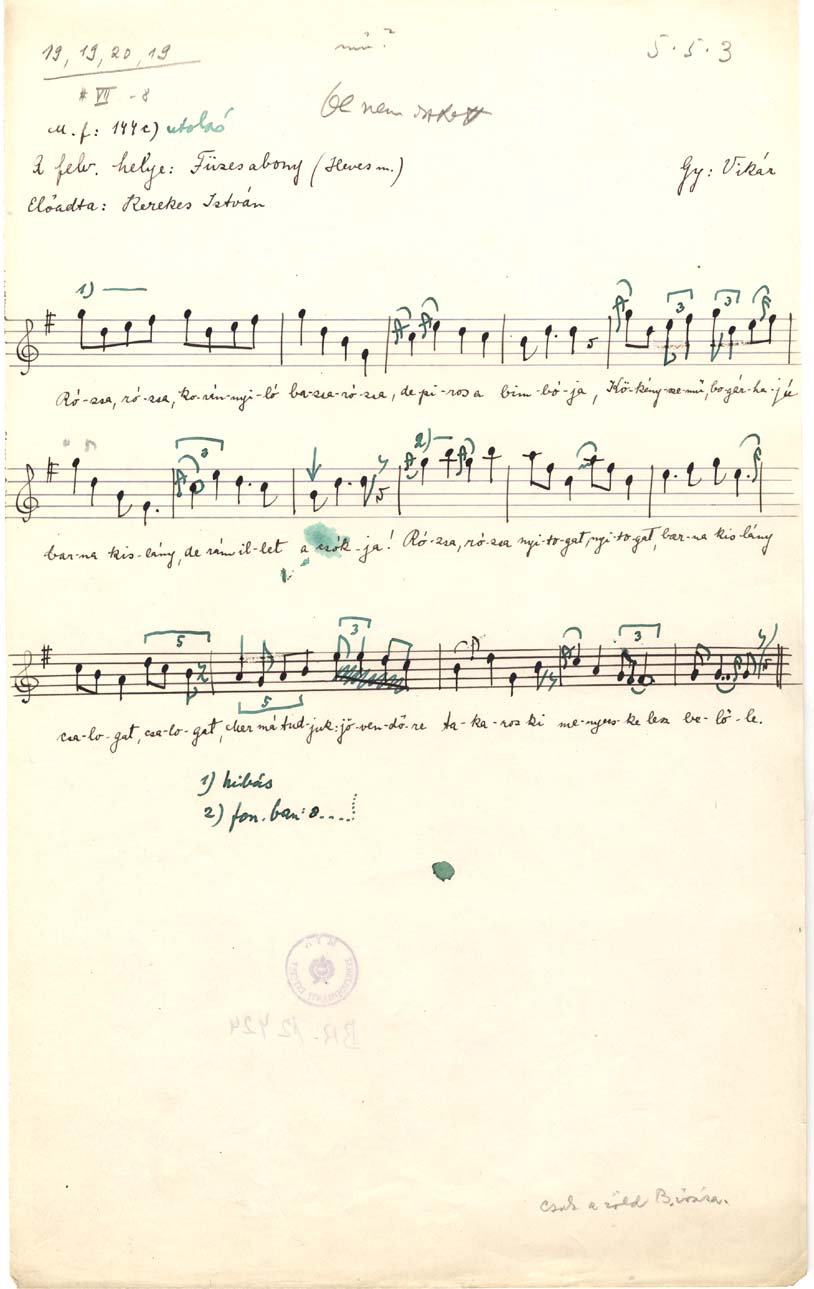 19, 19, 20, 19
mű?
5·5·3
# VII -8
M. f: 144c) utolsó
nem
A felv. helye: Füzesabony (Heves m.)
Gy: Vikár
Előadta: Kerekes István
1)
3 3
Ró-zsa, ró-zsa, ko-rán-nyi-ló ba-zsa-ró-zsa, de pi-ros a bim-bó-ja, Kö-kény-sze-mű, bo-gár-ha-jú
3 2)
bar-na kis-lány, de rám il-let a csók-ja! Ró-zsa, ró-zsa nyi-to-gat, nyi-to-gat, bar-na kis-lány
5 3 3
5
csa-lo-gat, csa-lo-gat, Mer má tud-juk: jö-ven-dő-re ta-ka-ros ki me-nyecs-ke lesz be-lő-le.
1) hibás
2) fon. ban: 8....
BR. 12424
csak a zöld B. írása.